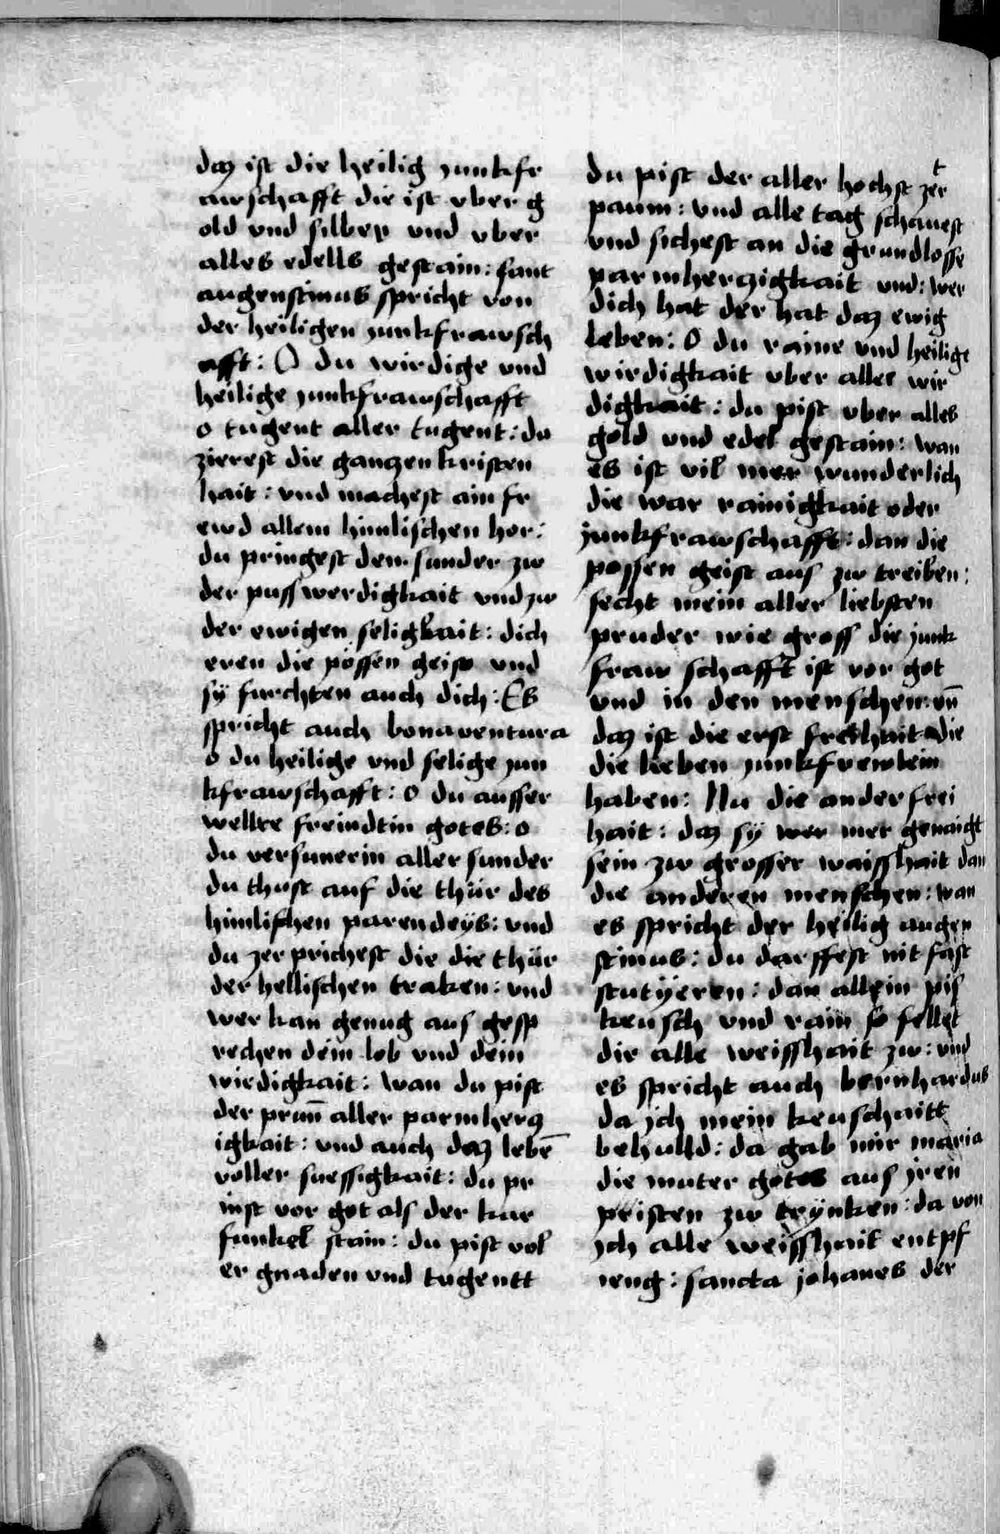 daz ist die heilig junkfr
awschafft die ist vber g
old vnd silber vnd vber
alles edells gestain: sant
augenstinus spricht von
der heiligen junkfrawsch
afft: O du wirdige vnd
heilige junkfrawschafft
o tugent aller tugent: du
zierest die ganczen kristen
hait: vnd machest ain fr
ewd allem himlischen hor:
du pringest dem sunder zw
der puss werdigkait vnd zw
der ewigen seligkait: dich
eren die pössen geist vnd
sÿ furchten auch dich: Es
spricht auch bonaventura
o du heilige vnd selige jun
kfrawschafft: o du ausser
welte freindtin gotes: o
du versunerin aller sunder
du thust auf die thür des
himlischen parendeÿs: vnd
du zerprichest die die thür
der hellischen traken: vnd
wer kan genug aus gesp
rechen dein lob vnd dein
wirdigkait: wan du pist
der prun̄ aller parmhercz
igkait: vnd auch daz lebē
voller suessigkait: du pr
inst vor got als der kar
funkel stain: du pist vol
er gnaden vnd tugentt
du pist der aller hochst zert
paum: vnd alle tag schauest
vnd sichest an die grundlosse
parmherczigkait vnd: wer
dich hat der hat daz ewig
leben: O du raine vnd heilige
wirdigkait vber aller wir
digkait: du pist vber alles
gold vnd edel gestain: wan
es ist vil mer wunderlich
die war rainigkait oder
junkfrawschafft: dan die
possen geist aus zw treiben:
secht mein aller liebsten
pruder wie gross die junk
fraw schafft ist vor got
vnd in den menschen: vn̄
daz ist die erst freihait die
die lieben junkfrewlein
haben: Nu die ander frei
hait: daz sÿ wer mer genaigt
sein zw grosser waisshait dan
die anderen menschen: wan
es spricht der heilig augen
stinus: du darffest nit fast
stutÿeren: dan allein pis
keusch vnd rain so fellet
dir alle weisshait zw: vnd
es spricht auch bernhardus
da jch mein keuschaitt
behulld: da gab mir maria
die muter gotes aus jren
pristen zw trÿnken: da von
jch alle weisshait entpf
ieng: sancta johanes der